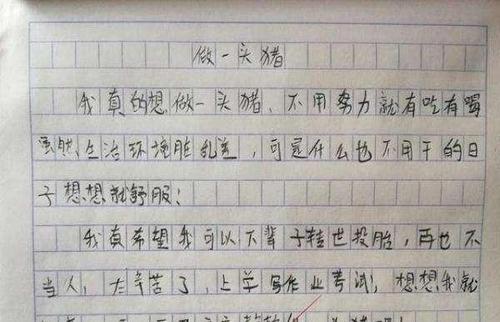 做一头猪
我真的想做一头猪、不用努力就有吃有喝
虽然、生活环境脏乱差，可是什么也不用干的日
子想想就舒服！
我真希望我可以下辈子转世投胎，再也不
当人，太辛苦了，上学写作业考试！想想我就